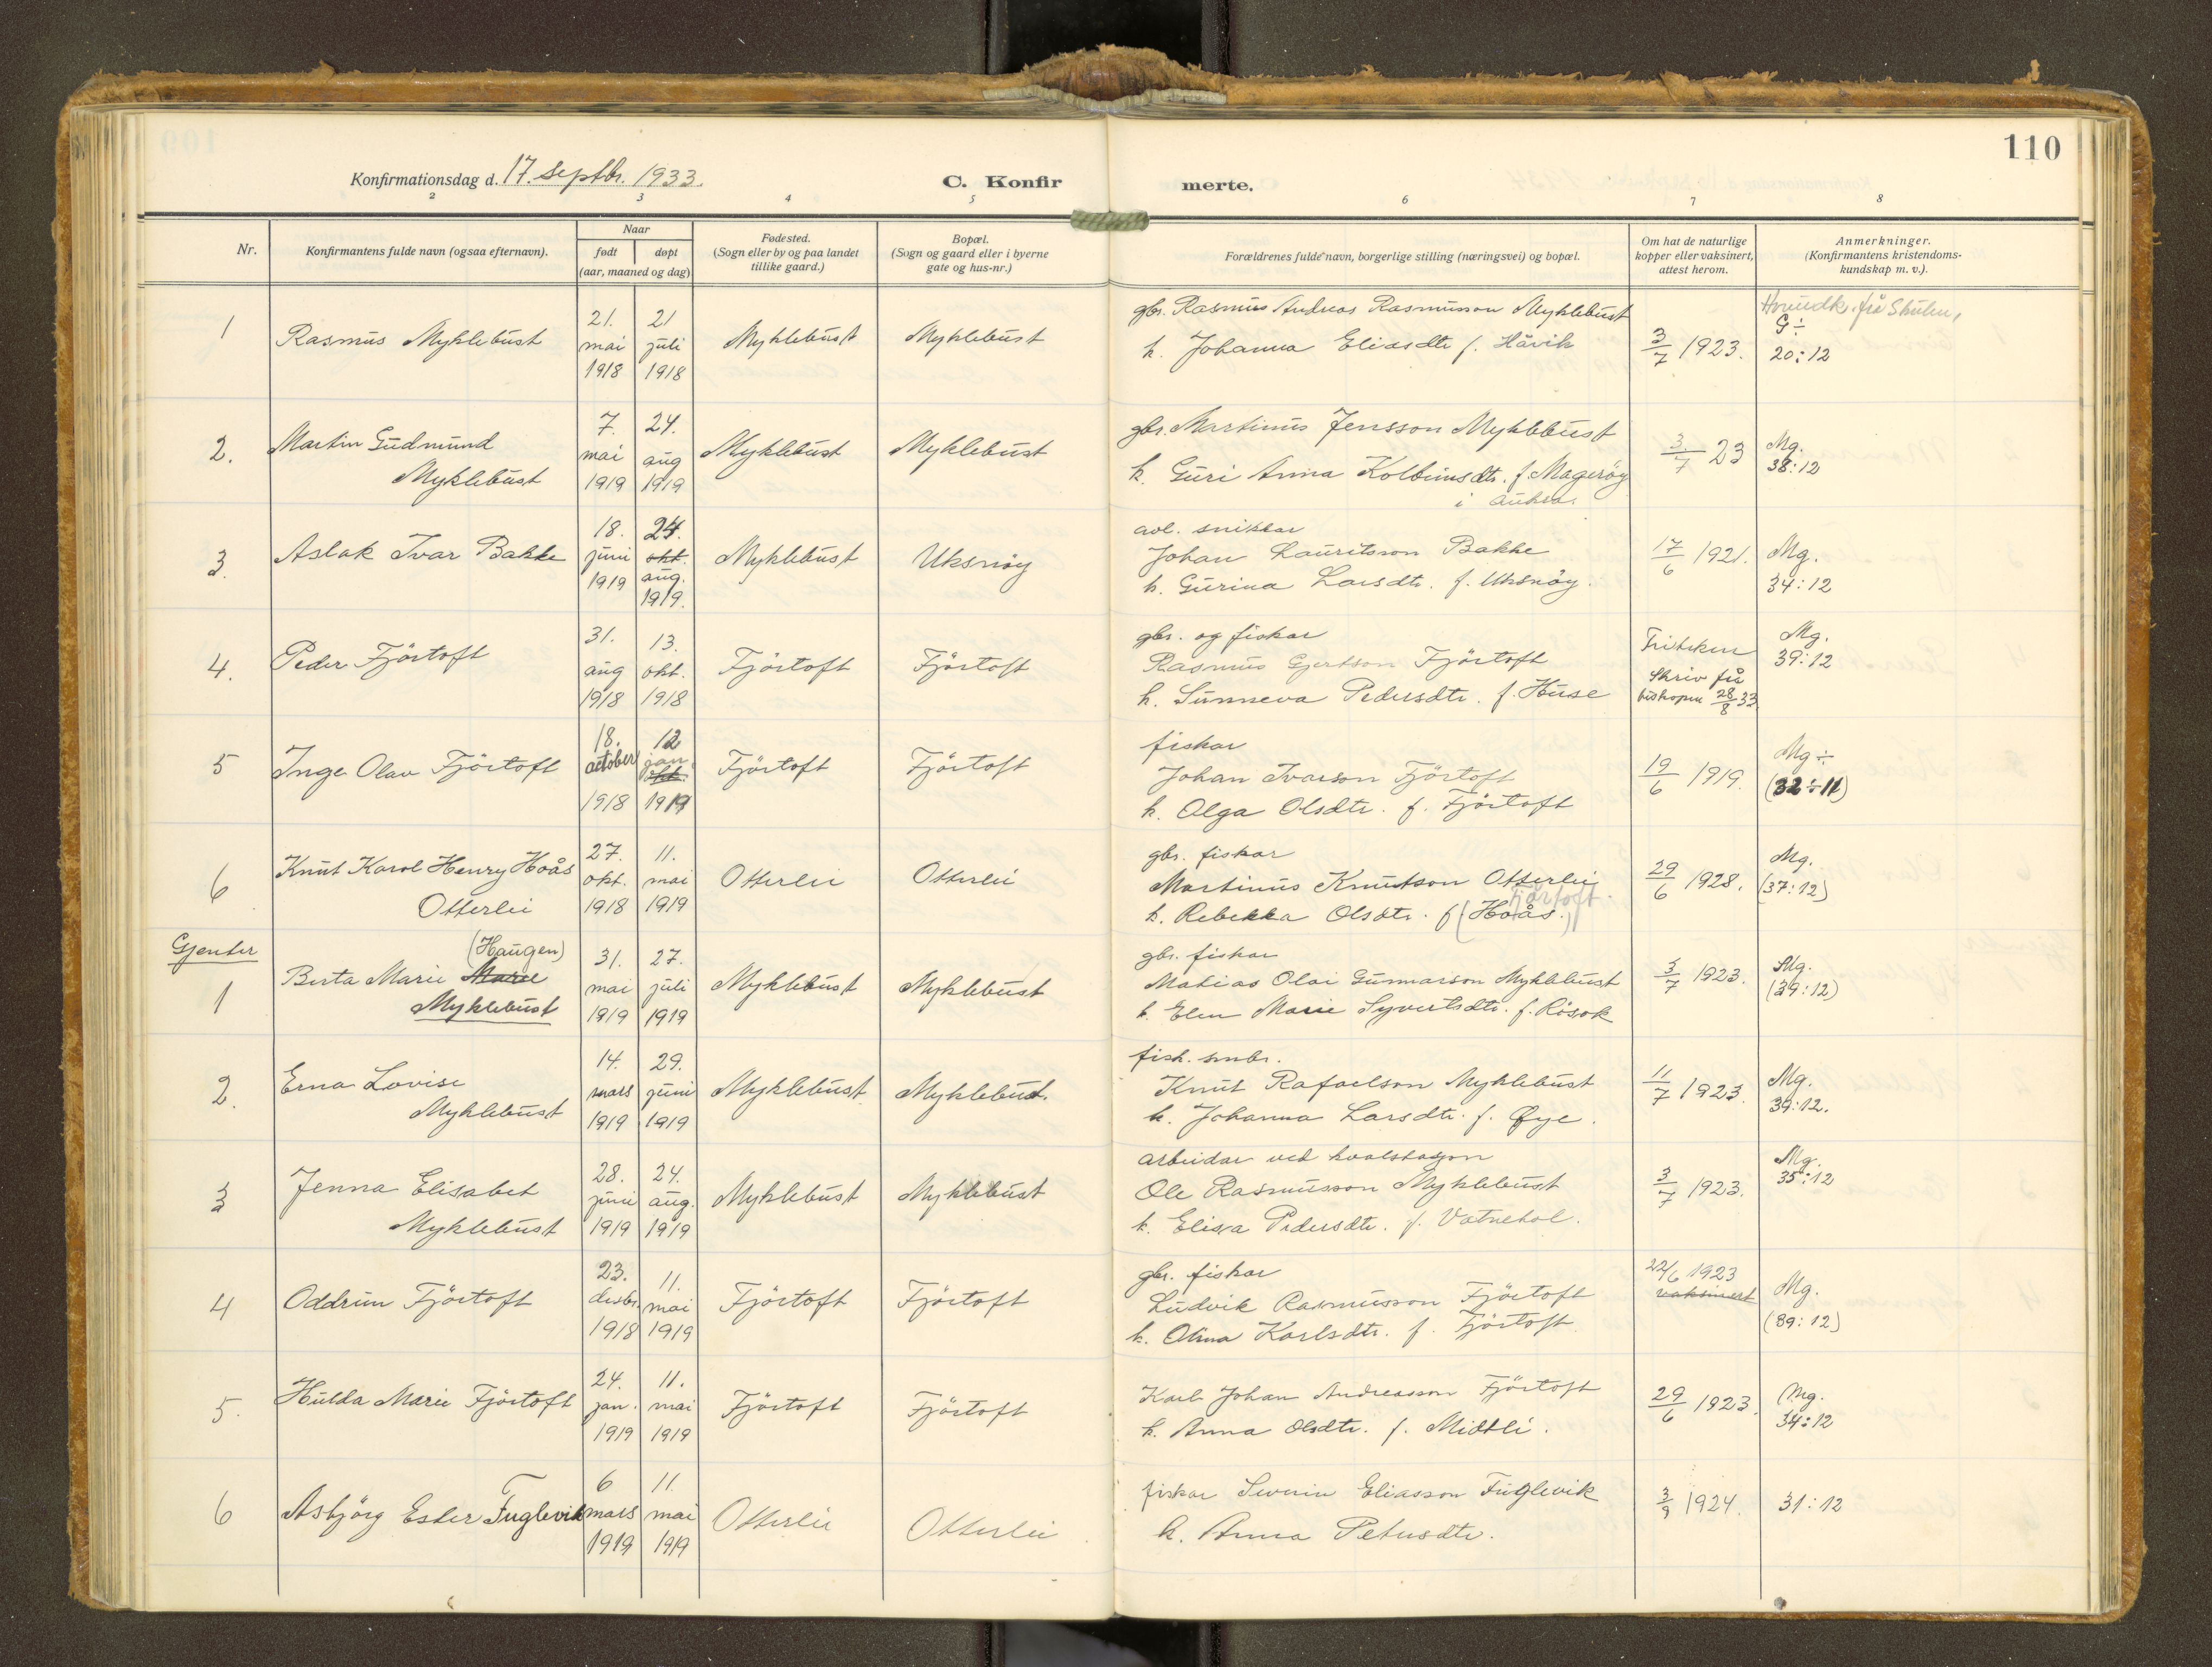 110
Konfirmationsdag d. 17. septbr. 1933.
C. Konfirmerte.
2 3 4 5 6 7 8
Nr.
Konfirmantens fulde navn (ogsaa efternavn).
Naar
født
døpt
(aar, maaned og dag)
Fødested.
(Sogn eller by og paa landet
tillike gaard.)
Bopæl.
(Sogn og gaard eller i byerne
gate og hus-nr.)
Forældrenes fulde navn, borgerlige stilling (næringsvei) og bopæl.
Om hat de naturlige
kopper eller vaksinert,
attest herom.
Anmerkninger.
(Konfirmantens kristendoms-
kundskap m. v.).
1 Rasmus Myklebust
21. mai 1918
21 juli 1918
Myklebust
Myklebust
gbr. Rasmus Andreas Rasmusson Myklebust
k. Johanna Eliasdtr f. Håvik
3/7 1923.
frå Skulen,
G÷
20:12
2. Martin Gudmund
Myklebust
7. mai 1919
24. aug 1919
Myklebust
Myklebust
gbr. Martinus Jensson Myklebust
k. Guri Anna Kolbeinsdtr. f. Magerøy
i Aukra.
3/7 23
Mg.
38:12
3. Aslak Ivar Bakke
18. juni 1919
24. okt. aug. 1919.
Myklebust
Uksnøy
avl. snikkar
Johan Lauritsson Bakke
k. Gurina Larsdtr. f. Uksnøy.
17/6 1921.
Mg.
34:12
4. Peder Fjörtoft
31. aug 1918
13. okt. 1918
Fjörtoft
Fjörtoft
gbr. og fiskar
Rasmus Gjertson Fjörtoft
k. Sunneva Pedersdtr. f. Huse
Skriv frå
biskopen 28/8 33
Mg.
39:12
5 Inge Olav Fjörtoft
18. october 1918
12 jan. okt. 1919
Fjörtoft
Fjörtoft
fiskar
Johan Ivarson Fjörtoft
k. Olga Olsdtr. f. Fjörtoft
19/6 1919.
Mg ÷
(32÷11)
6 Knut Karol Henry Hoås
Otterlei
27. okt. 1918
11. mai 1919
Otterlei
Otterlei
gbr. fiskar
Martinus Knutson Otterlei
Fjørtoft.
k. Rebekka Olsdtr. f (Hoås.)
29/6 1928.
Mg.
(37:12)
Gjenter
1 (Haugen)
Berta Marie Marie
Myklebust
31. mai 1919
27. juli 1919
Myklebust
Myklebust
gbr. fiskar
Matias Olai Gunnarson Myklebust
k. Elen Marie Syvertsdtr. f. Rösok
3/7 1923.
Mg.
(39:12)
2. Erna Lovise
Myklebust
14. mars 1919
29. juni 1919
Myklebust
Myklebust.
fisk. smbr.
Knut Rafaelson Myklebust
k. Johanna Larsdtr. f. Øye.
11/7 1923.
Mg.
39:12.
3 Jenna Elisabet
Myklebust
28. juni 1919
24. aug. 1919
Myklebust
Myklebust
arbeidar ved kvalstasjon
Ole Rasmusson Myklebust
k. Elisa Pedersdtr. f. Vatnehol.
3/7 1923.
Mg.
35:12
4 Oddrun Fjörtoft
23. desbr. 1918
11. mai 1919
Fjörtoft
Fjörtoft
gbr. fiskar
Ludvik Rasmusson Fjörtoft
k. Olina Karlsdtr. f. Fjörtoft
22/6 1923
vaksinert
Mg.
(39:12)
5. Hulda Marie Fjörtoft
24. jan. 1919
11. mai 1919
Fjörtoft
Fjörtoft
Karl Johan Andreasson Fjörtoft
k. Anna Olsdtr. f. Midtli.
29/6 1923.
Mg.
34:12
6 Asbjörg Ester Fuglevik
6 mars 1919
11. mai 1919
Otterlei
Otterlei
fiskar Severin Eliasson Fuglevik
k. Anna Petersdtr.
3/9 1924.
31:12